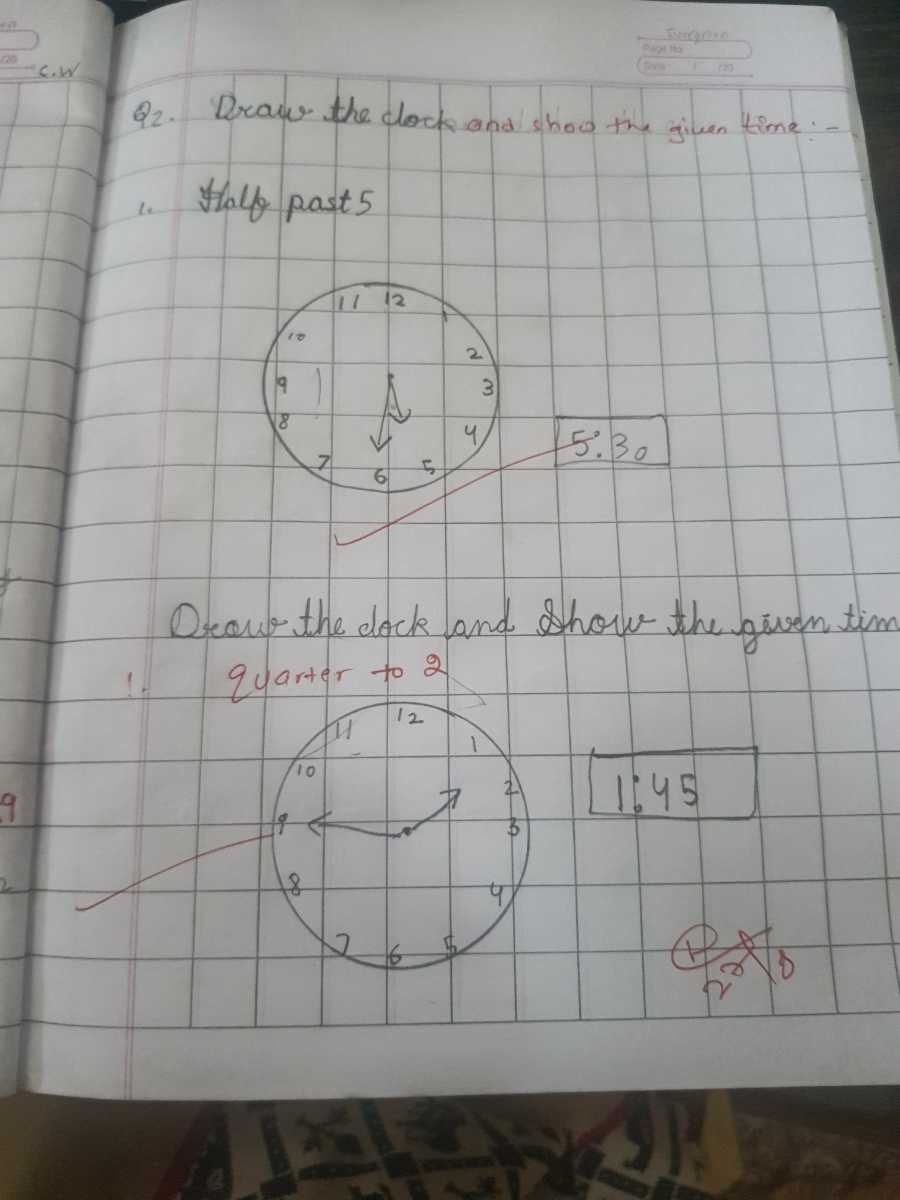 C.W
Evergreen
Page No
Date / /20
Q2. Draw the clock and shoo the given time:-
1. Half past 5
11 12
10
2
9
3
8
4
7
6
5
5:30
Draw the clock and Show the given tim
1. quarter to 2
12
11
1
10
2
9
3
8
4
7
6
5
1:45